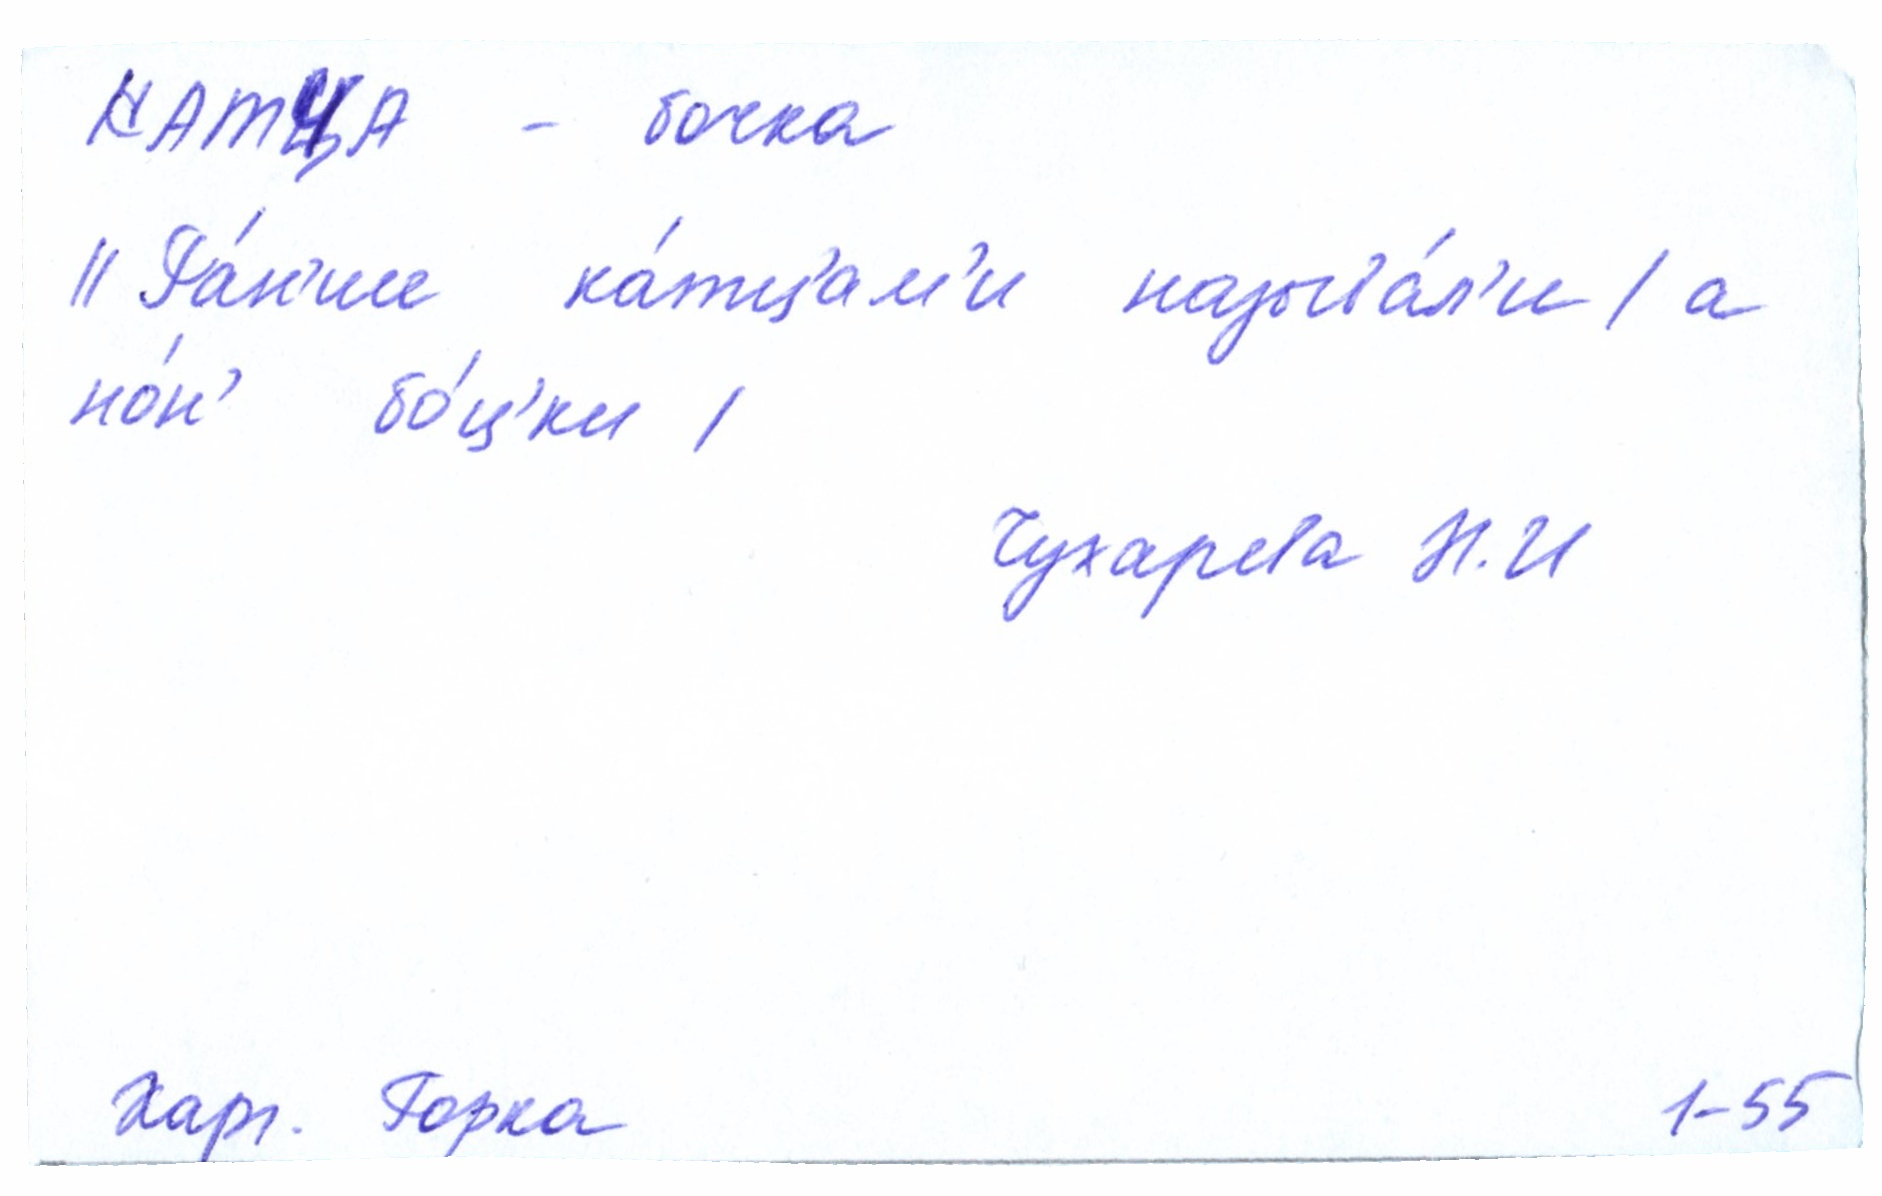 КАТЦА - бочка
|| Ра́н'ше ка́тц'ам'и называ́л'и / а
но́н' бо́ц'ки /
Чухарева Н.И
Харл. Горка
1-55